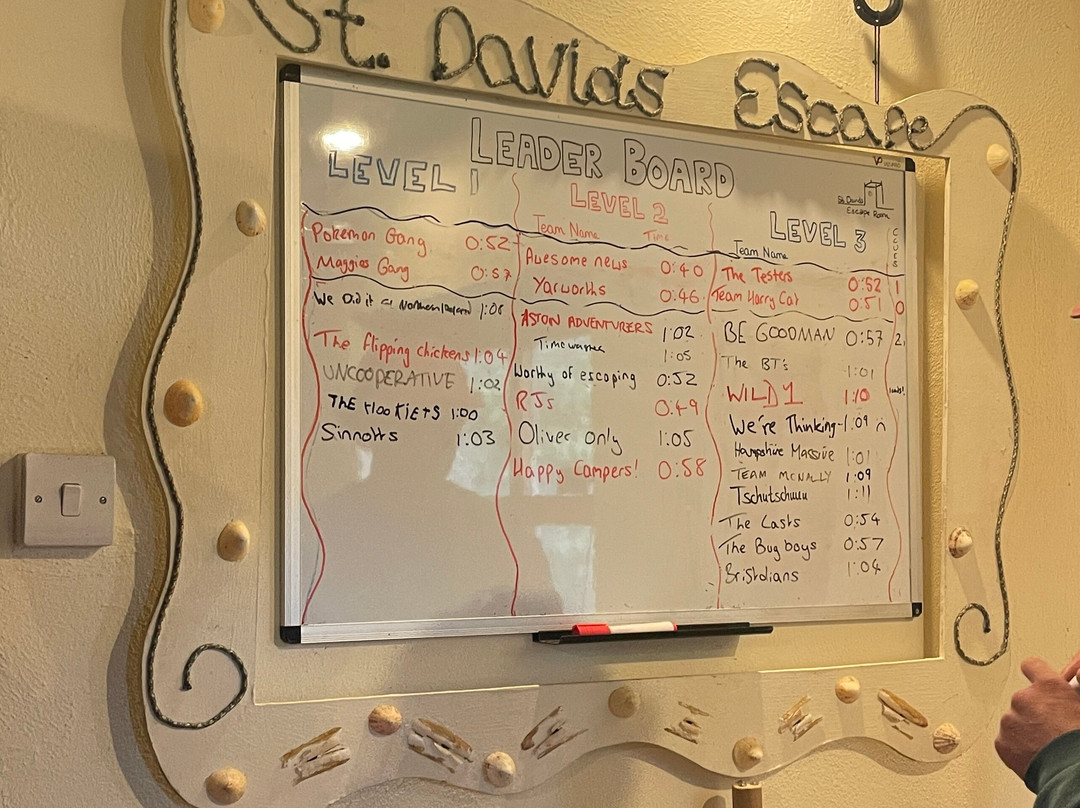 St. Davids Escape
LEADER BOARD
St Davids
Escape Room
LEVEL 1
Pokemon Gang 0:52
Maggies Gang 0:57
We Did it 1:06
The flipping chickens 1:04
UNCOOPERATIVE 1:02
THE HOOKIETS 1:00
Sinnotts 1:03
LEVEL 2
Team Name Time
Awesome news 0:40
Yarworths 0:46
ASTON ADVENTURERS 1:02
Timewaster 1:05
Worthy of escaping 0:52
RJs 0:49
Oliver only 1:05
Happy Campers! 0:58
LEVEL 3
Team Name CLUES
The Testers 0:52 1
Team Harry Cat 0:51 0
BE GOODMAN 0:57 2
The BT's 1:01
WILD 1 1:10
We're Thinking 1:09
Hampshire Massive 1:01
TEAM MCNALLY 1:09
Tschutschuuu 1:11
The Lasts 0:54
The Bug boys 0:57
Bristolians 1:04